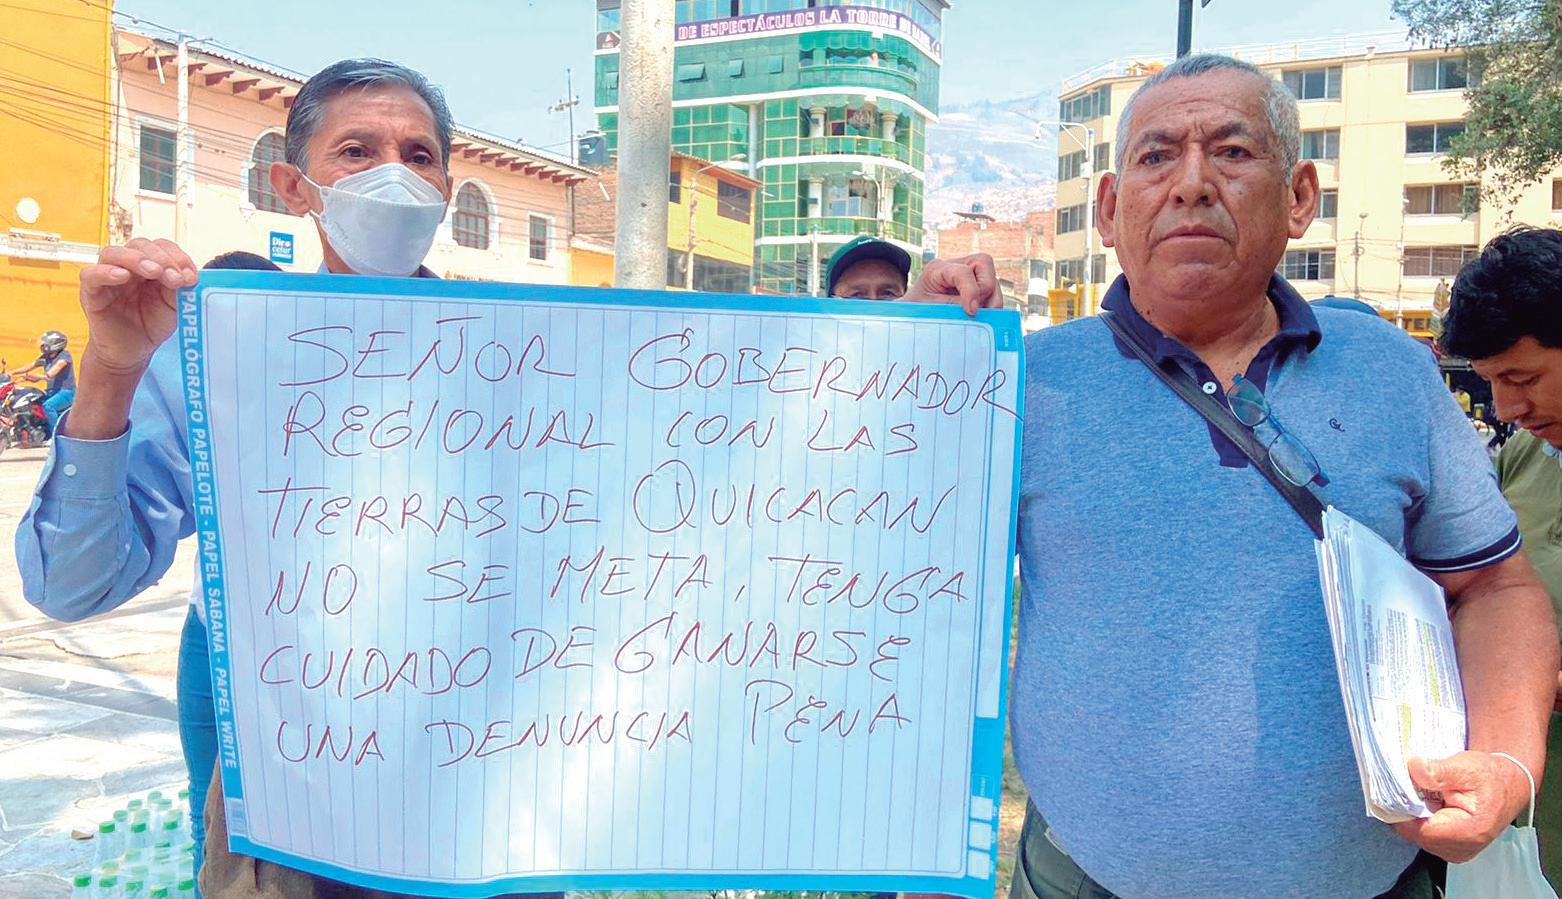 DE ESPECTÁCULOS LA TORRE
Dirc
cetur
PAPELÓGRAFO PAPELOTE - PAPEL SABANA - PAPEL WRITE
SEÑOR GOBERNADOR
REGIONAL CON LAS
TIERRAS DE QUICACAN
NO SE META, TENGA
CUIDADO DE GANARSE
UNA DENUNCIA PENA